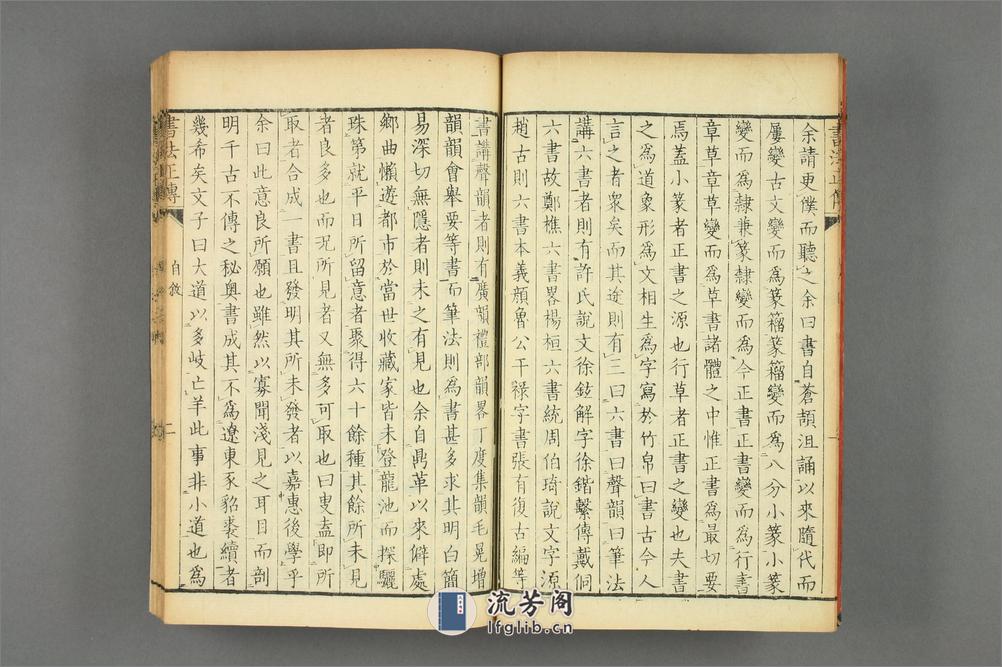 余請更僕而聽之余曰書自蒼頡沮誦以來隨代而
屢變古文變而爲篆籀篆籀變而爲八分小篆小篆
變而爲隸兼篆隸變而爲今正書正書變而爲行書
章草章草變而爲草書諸體之中惟正書爲最切要
焉蓋小篆者正書之源也行草者正書之變也夫書
之爲道象形爲文相生爲字寫於竹帛曰書古今人
言之者衆矣而其途則有三曰六書曰聲韻曰筆法
講六書者則有許氏說文徐鉉解字徐鍇繫傳戴侗
六書故鄭樵六書畧楊桓六書統周伯琦說文字源
趙古則六書本義顏魯公干祿字書張有復古編等
書講聲韻者則有廣韻禮部韻畧丁度集韻毛晃增
韻韻會舉要等書而筆法則爲書甚多求其明白簡
易深切無隱者則未之有見也余自鼎革以來僻處
鄉曲懶遊都市於當世收藏家皆未登龍池而探驪
珠第就平日所留意者聚得六十餘種其餘所未見
者良多也而況所見者又無多可取也曰叟盍即所
取者合成一書且發明其所未發者以嘉惠後學乎
余曰此意良所願也雖然以寡聞淺見之耳目而剖
明千古不傳之秘奧書成其不爲遼東豕貂裘續者
幾希矣文子曰大道以多岐亡羊此事非小道也爲
書法正傳
自敘
二
流芳阁
lfglib.cn